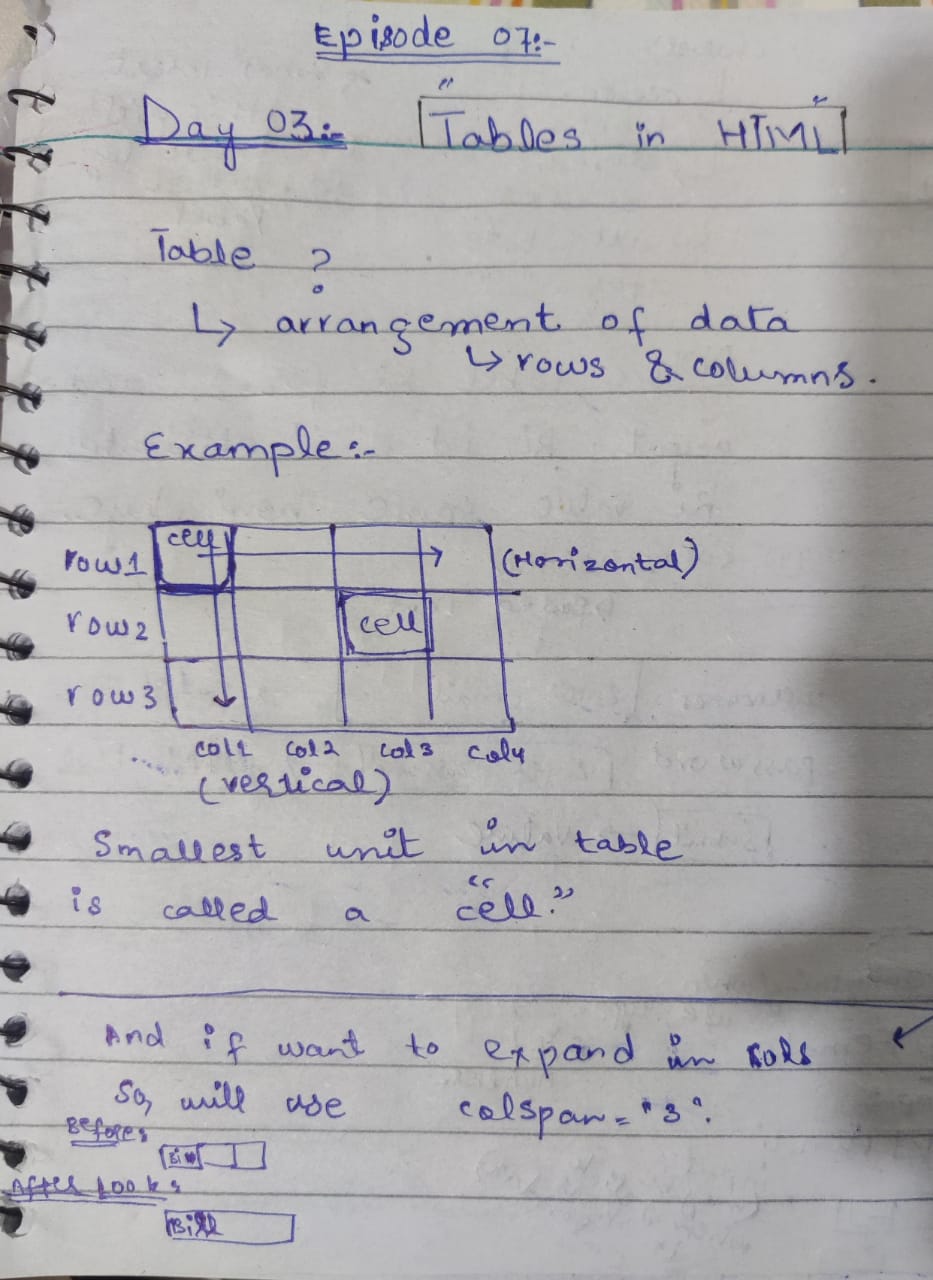 Episode 07:-
Day 03:- "Tables in HTML"
Table ?
↳ arrangement of data
↳ rows & columns.
Example:-
row1 cell (Horizontal)
row2 cell
row3
col1 col2 col3 col4
(vertical)
Smallest unit in table
is called a "cell."
And if want to expand in cols
So, will use colspan="3".
Before,
Bill
After looks
Bill